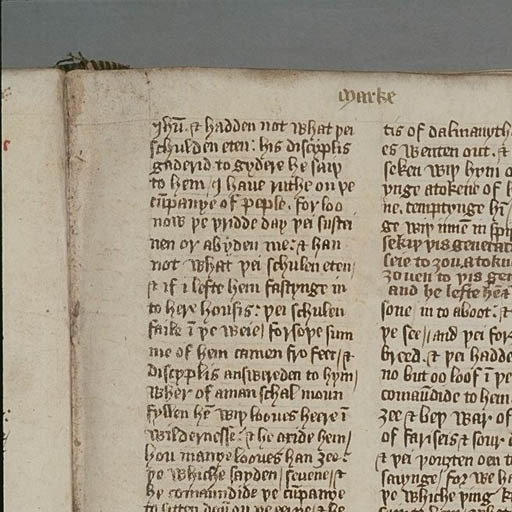 marke
ihū. & hadden not what þei
schulden eten: his discyplis
gaderid to gydere he saiþ
to hem / I haue ruthe on þe
cūpanye of peple. for loo
now þe þridde day þei sustei
nen or abyden me: & han
not what þei schulen eten/
& if i lefte hem fastynge in
to here housis: þei schulen
faile ī þe weie/ forsoþe sum
me of hem camen fro feer/ &
discyplis answereden to hym/
wher of a man schal moun
fyllen hē wiþ looues heere ī
wildernesse: & he axide hem/
hou manye looues han ȝee:
þe whiche sayden/ seuene/ &
he comaundide þe cūpanye
to sitten doun on þe eerþe & he
tis of dalmanyth
es wenten out. &
seken wiþ hym
ynge a tokene of
ne. temptynge hī
ge wiþ inne in spi
sekiþ þis generaci
seie to ȝou a tokn
ȝouen to þis gen
and he lefte hē
sone/ in to a boot: &
þe see// and þei for
breed. & þei hadde
no but oo loof ī þe
comaūdide to hem
ȝee & beþ war of
of fariseis & sour
& þei þouȝten oon t
saiynge/ for we ha
þe whiche þing